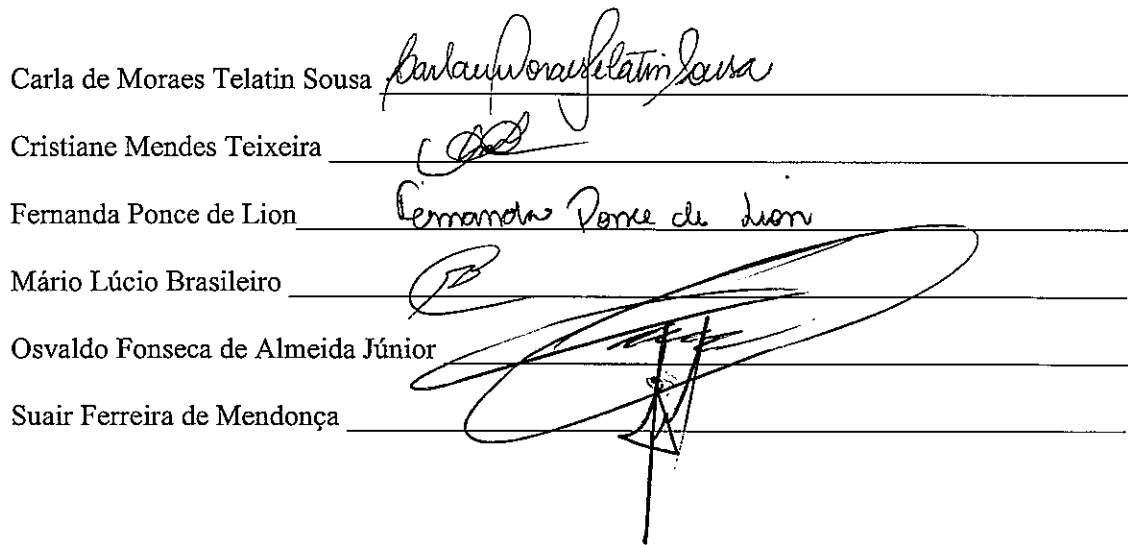 Carla de Moraes Telatin Sousa Carla de Moraes Telatin Sousa
Cristiane Mendes Teixeira
Fernanda Ponce de Lion Fernanda Ponce de Lion
Mário Lúcio Brasileiro
Osvaldo Fonseca de Almeida Júnior
Suair Ferreira de Mendonça